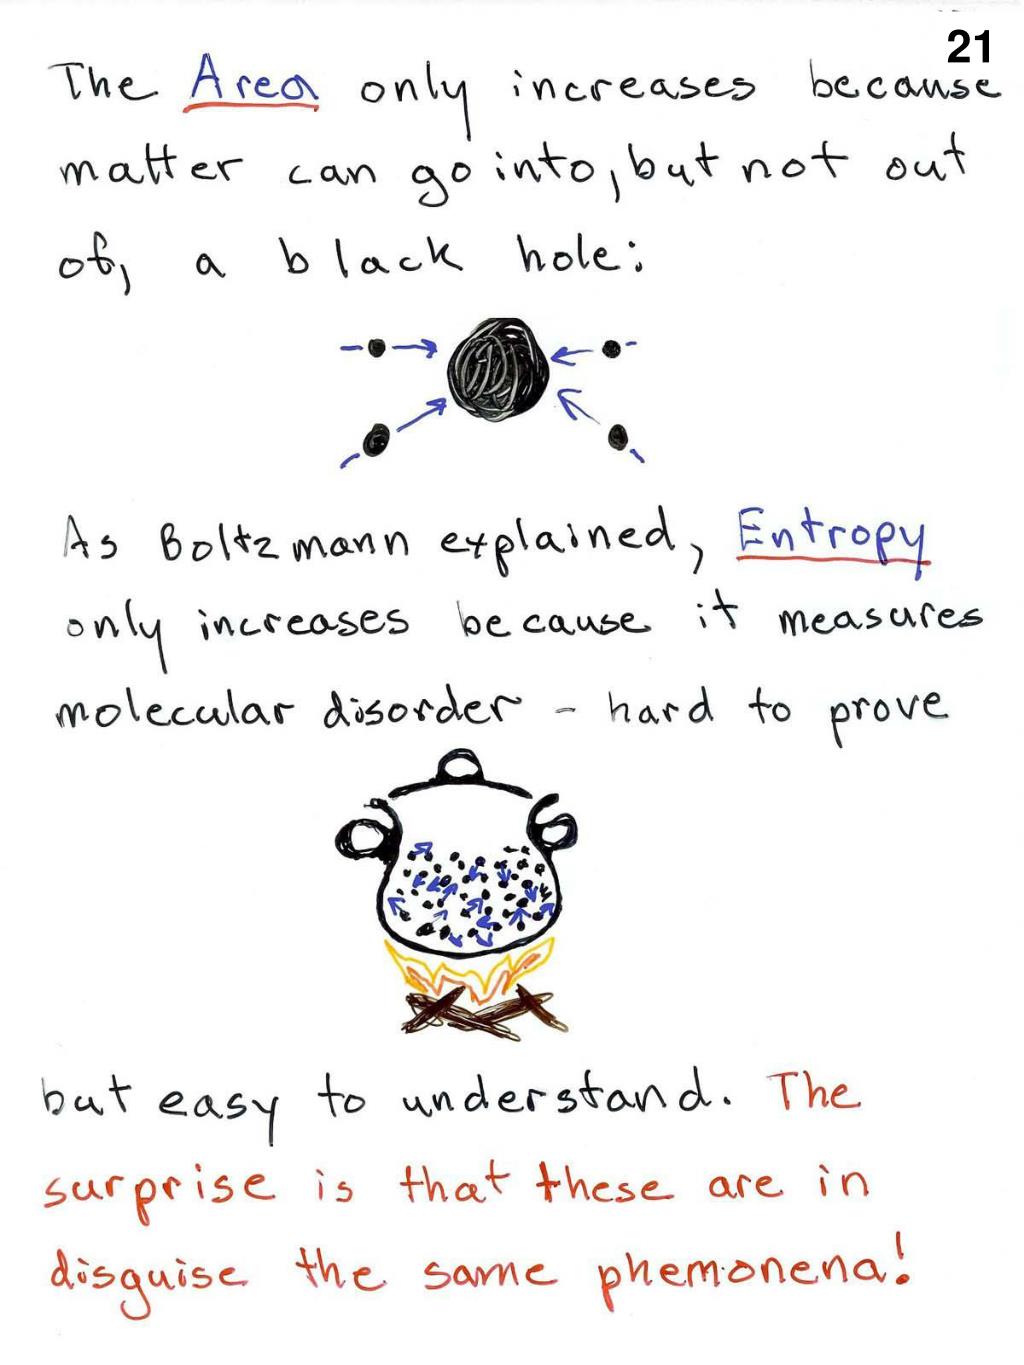 21
The Area only increases because
matter can go into, but not out
of, a black hole:
As Boltzmann explained, Entropy
only increases because it measures
molecular disorder - hard to prove
but easy to understand. The
surprise is that these are in
disguise the same phemonena!